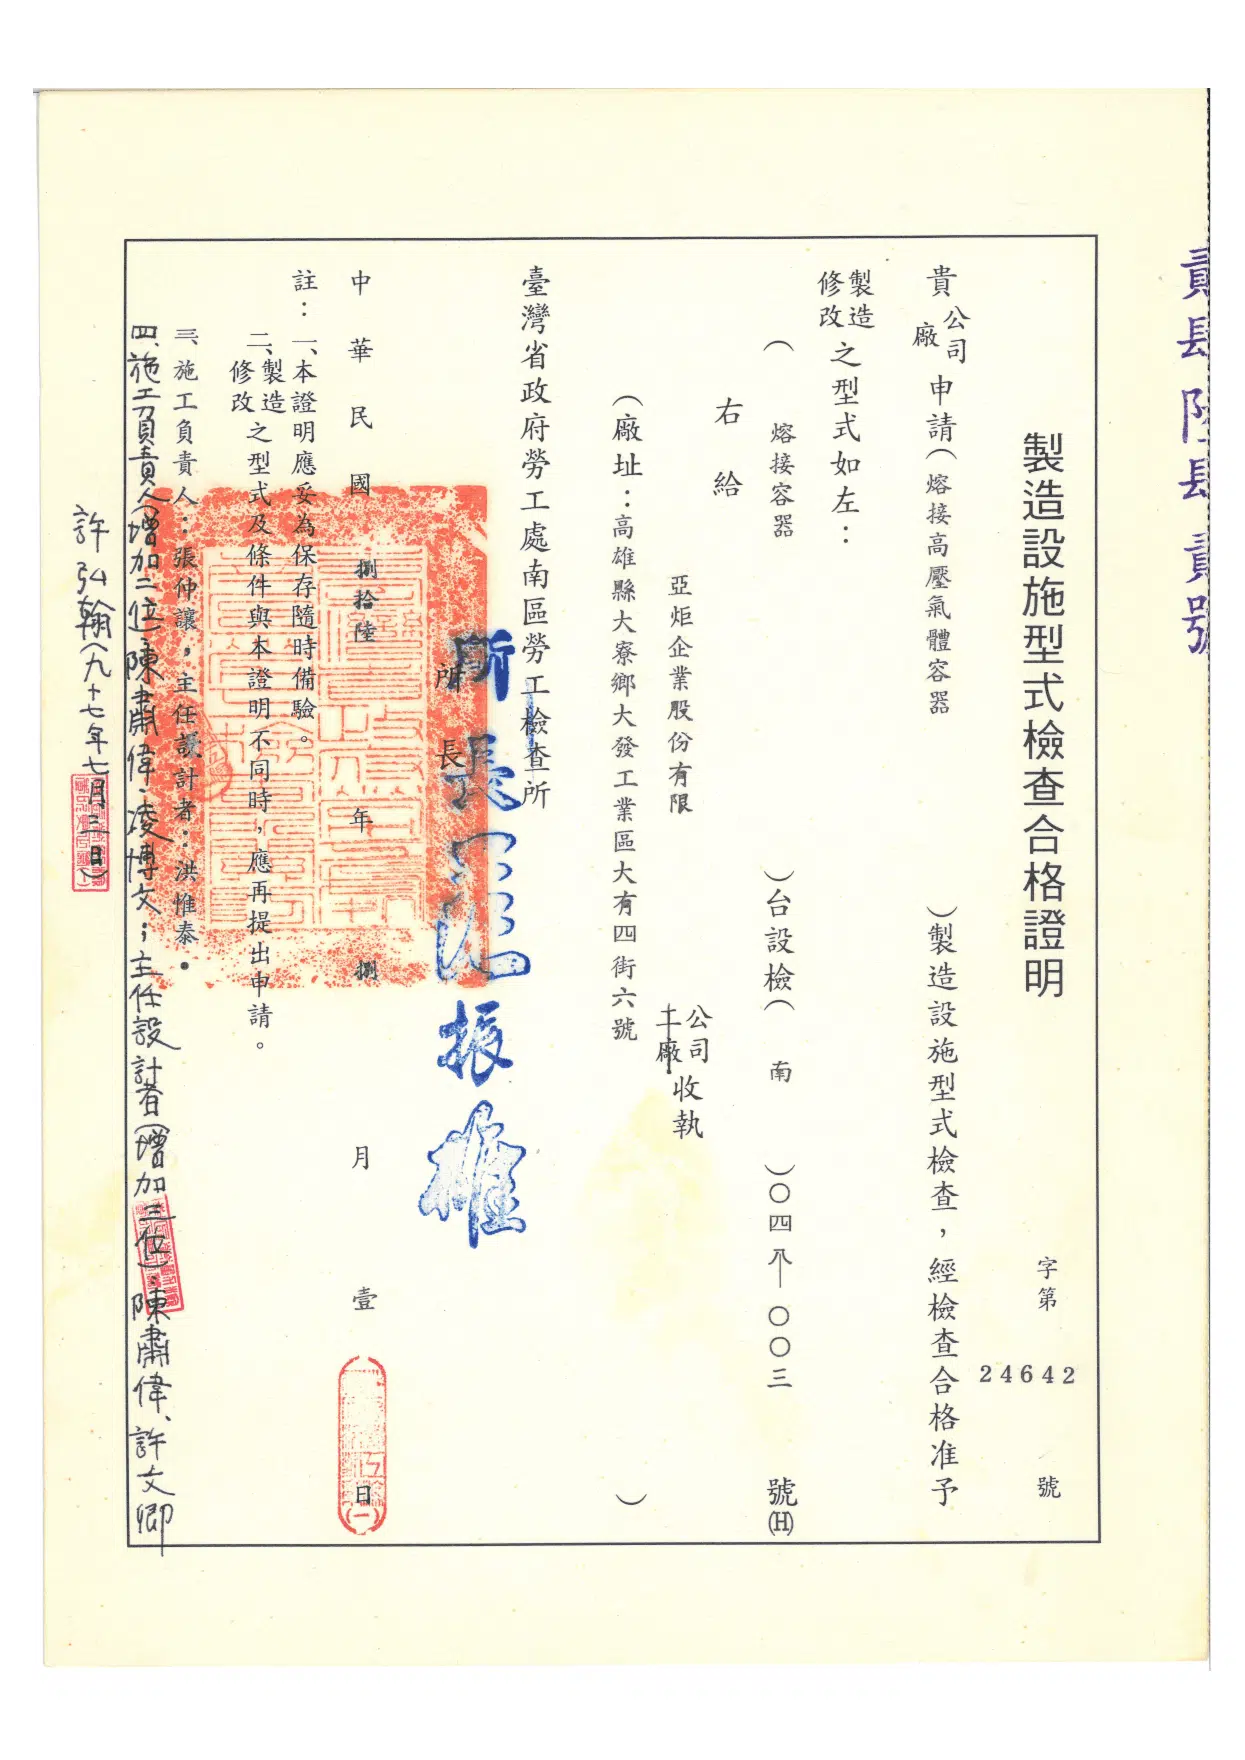 貳肆陸肆貳號
製造設施型式檢查合格證明
字第 24642 號
貴公司廠申請(熔接高壓氣體容器)製造設施型式檢查,經檢查合格准予
製造修改之型式如左:
(熔接容器)台設檢(南)〇四八—〇〇三號(H)
右給
亞炬企業股份有限公司工廠收執
(廠址:高雄縣大寮鄉大發工業區大有四街六號)
臺灣省政府勞工處南區勞工檢查所
所長
所長 振雄
中華民國捌拾陸年捌月壹日
註:一、本證明應妥為保存隨時備驗。
二、製造修改之型式及條件與本證明不同時,應再提出申請。
三、施工負責人:張仲讓,主任設計者:洪惟泰。
四、施工負責人(增加二位)陳肅偉、凌博文;主任設計者(增加三位):陳肅偉、許文卿
許弘翰(九十七年七月三日)